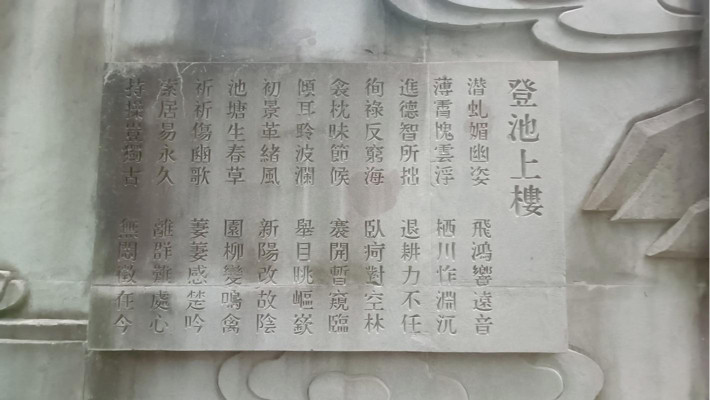 登池上樓
潛虬媚幽姿 飛鴻響遠音
薄霄愧雲浮 栖川怍淵沉
進德智所拙 退耕力不任
徇祿反窮海 臥疴對空林
衾枕昧節候 褰開暫窺臨
傾耳聆波瀾 舉目眺嶇嶔
初景革緒風 新陽改故陰
池塘生春草 園柳變鳴禽
祈祈傷豳歌 萋萋感楚吟
索居易永久 離群難處心
持操豈獨古 無悶徵在今